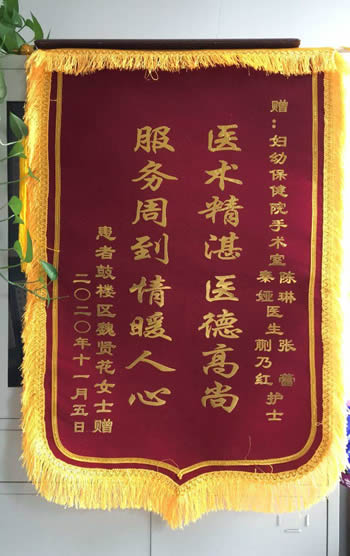 赠：妇幼保健院手术室
陈琳 张蕾
秦娅医生 蒯乃红 护士
医术精湛医德高尚
服务周到情暖人心
患者鼓楼区魏贤花女士赠
二〇二〇年十一月五日